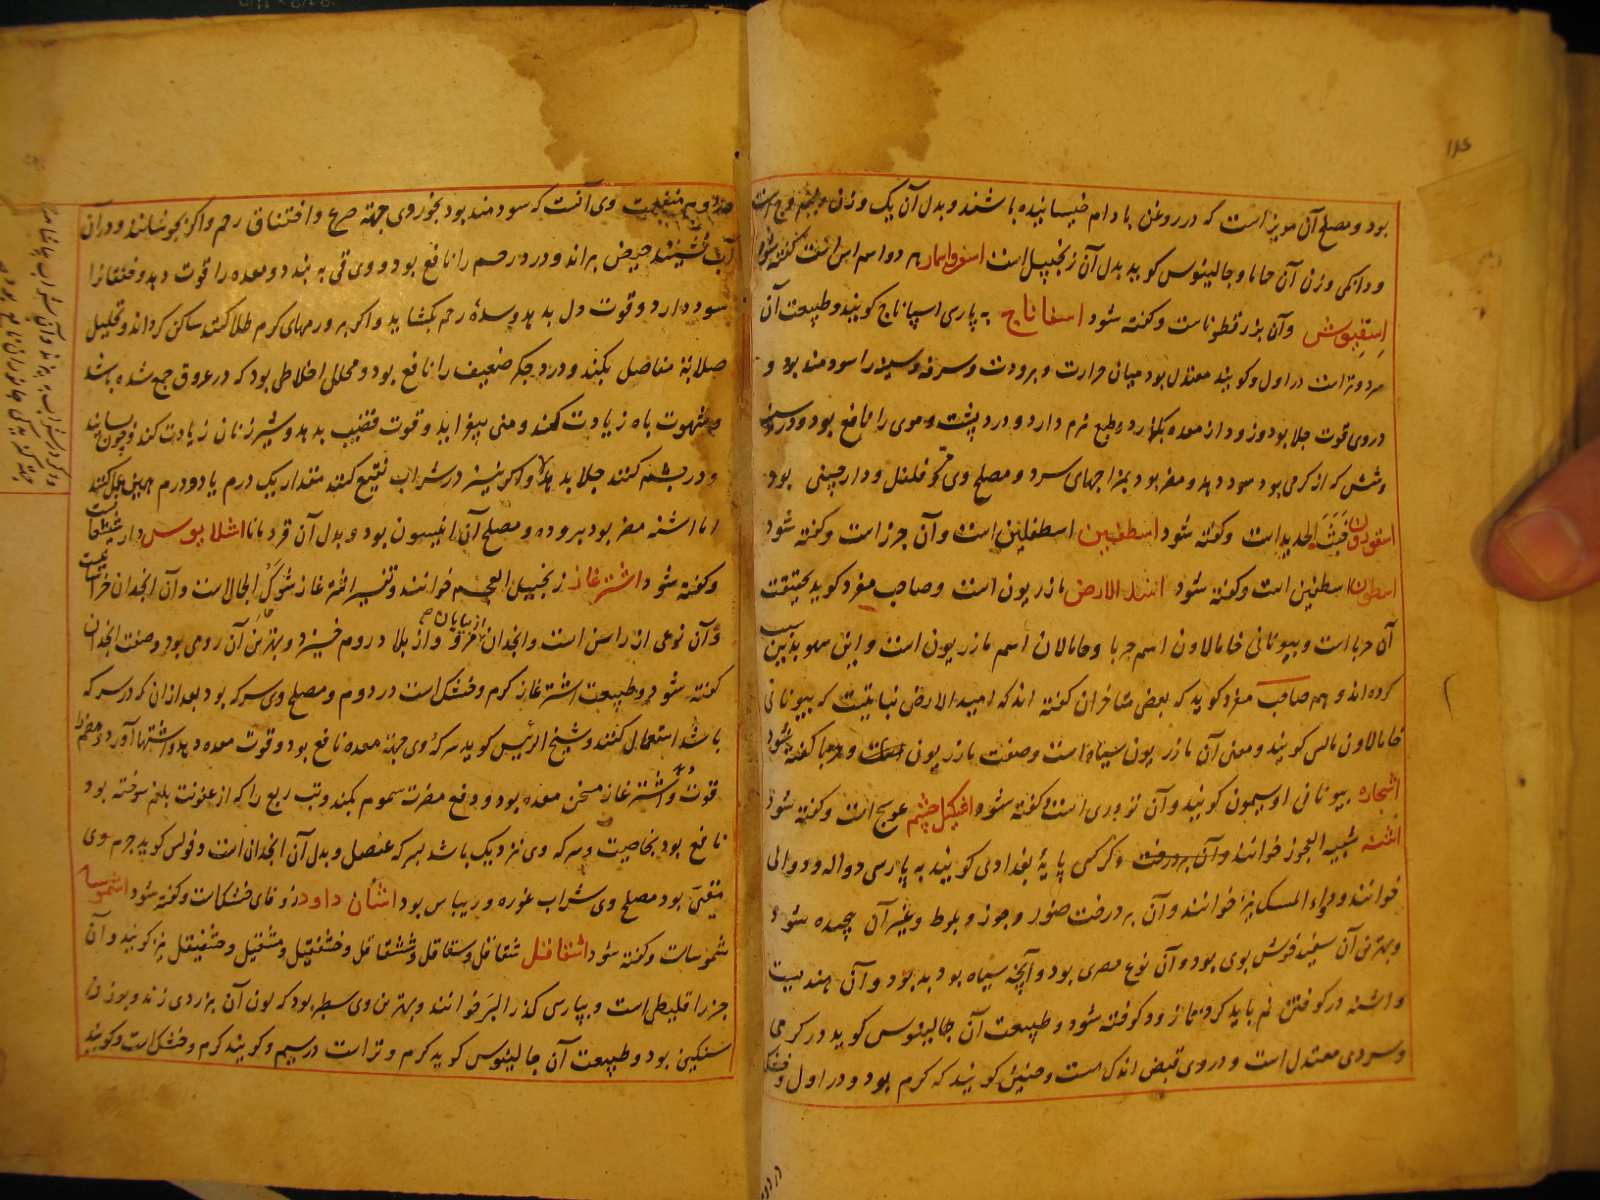 بود و مصلح آن مویز است که در روغن بادام خیسانیده باشند و بدل آن یک وزن
و دانکی وزن آن حاما و جالینوس کوید بدل آن زنجبیل است اسفرواسار هر دو اسم اس است کفته شود
اسقیوش وآن بزرقطوناست و کفته شود اسفاناج به پارسی اسپاناج کویند و طبیعت آن
سرد و تر است در اول و کویند معتدل بود میان حرارت و برودت و سرفه و سینه را سودمند بود و
در وی قوت جلا بود و زود از معده بکذرد و طبع نرم دارد و درد پشت و موی را نافع بود و درد سینه
و شش که از کرمی بود سود دهد و مضر بود بمزاجهای سرد و مصلح وی فلفل و دارچینی بود
اسقورن خبث الحدید است و کفته شود اسطفنین اسطفلین است وآن جزر است و کفته شود
اسطفنین است و کفته شود اسد الارض مازریون است و صاحب مفرد کوید بحقیقت
آن حربا است و بیونانی خامالاون اسم حربا و خامالان اسم مازریون است و این سهو بدین سبب
کرده اند و هم صاحب مفرد کوید که بعض متاخران کفته اند که اسد الارض نباتیست که بیونانی
خامالاون مالس کویند و معنی آن مازریون سیاه است و صفت مازریون و حربا کفته شود
اشجاره بیونانی اوسیمون کویند وآن توذری است و کفته شود افیکیل چشم عوسج است و کفته شود
اشنه شیبة العجوز خوانند وآن بدرخت و کرکسی پایۀ بغدادی کویند به پارسی دواله و دوالی
خوانند و دواء المسک نیز خوانند وآن بر درخت صنوبر و جوز و بلوط و غیر آن پیچیده شود و
و بهترین آن سفید خوش بوی بود وآن نوع مصری بود و آنچه سیاه بود بد بود وآن هندیست
و اشنه در کوفتن نم باید کرد تا زود کوفته شود و طبیعت آن جالینوس کوید در کرمی
و سردی معتدل است و در وی قبض اندک است و حنین کویند که کرم بود و در اول و خشک
منفعت وی آنست که سودمند بود بخور وی جهة صرع و اختناق رحم و اکر بجوشانند و در آن
آب نشینند حیض براند و درد رحم را نافع بود و وی قی به بندد و معده را قوت دهد و خفقانرا
سود دارد و قوت دل بدهد و سدۀ رحم بکشاید و اکر بر ورمهای کرم طلا کنند ساکن کرداند و تحلیل
صلابة مفاصل بکند و درد جکر ضعیف را نافع بود و محلل اخلاطی بود که در عروق جمع شده باشد
و شهوت باه زیادت کند و منی بیفزاید و قوت قضیب بدهد و شیر زنان زیادت کند و چون بسایند
و در چشم کشند جلا بدهد و اکر نیز در شراب نقیع کنند مقدار یک درم یا دو درم همین عمل کند
اما اشنه مضر بود بروده و مصلح آن انیسون بود و بدل آن قردمانا اشلابوس دارشیشعانست
و کفته شود اشترغاز زنجبیل العجم خوانند و تفسیر اشترغاز شوک الجمال است وآن انجدان خراسانیست
وآن نوعی از راسن است و انجدان از بیابان خیزد و از بلاد روم خیزد و بهترین آن رومی بود و صفت انجدان
کفته شود و طبیعت اشترغاز کرم و خشک است در دوم و مصلح وی سرکه بود بعد از ان که در سرکه
باشد استعمال کنند و شیخ الرئیس کوید سرکۀ وی جهة معده نافع بود و قوت معده دهد و اشتها آورد و هضم را
قوت دهد و اشترغاز مسخن معده بود و دفع مضرت سموم بکند و تب ربع را که از عفونت بلغم سوخته بود
نافع بود بخاصیت و سرکه وی نزدیک باشد بسرکه عنصل و بدل آن انجدان است و فولس کوید جرم وی
مقیئ بود مصلح وی شراب غوره و ریباس بود اشنان داود زوفای خشکست و کفته شود اشموسا
شموسات و کفته شود اشقاقل شقاقل و سقاقل و ششقاقل و خشفیتل و مشقیل و حشفیقل نیز کویند وآن
جزر اقلیطی است و بپارسی کذر البر خوانند و بهترین وی سطبر بود که لون آن بزردی زند و بوزن
سنکین بود و طبیعت آن جالینوس کوید کرم و تر است در سیم و کویند کرم و خشک است و کویند